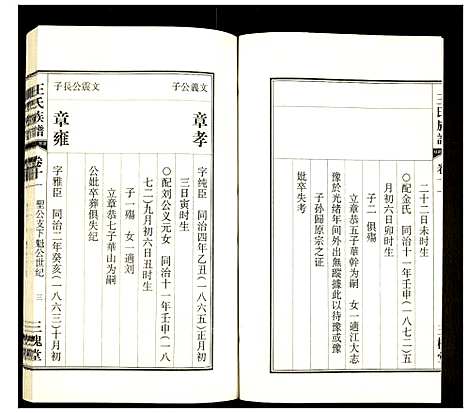 二十二日未时生
○配金氏 同治十一年壬申（一八七二）五
月初六日卯时生
子二 俱殤
立章恭五子華幹为嗣 女一適江大志
豫於光绪年间外出無蹤據此以待豫或豫
子孙歸原宗之证
妣卒失考
文義公子
章孝
字纯臣 同治四年乙丑（一八六五）正月初
三日寅时生
○配刘公义元女 同治十一年壬申（一八
七二）九月初六日丑时生
立章恭七子華山为嗣 女一適刘
公妣卒葬俱失纪
文震公長子
章雍
字雅臣 同治二年癸亥（一八六三）十月初
王氏族譜 卷十 聖公支下魁公世纪 三 三槐堂